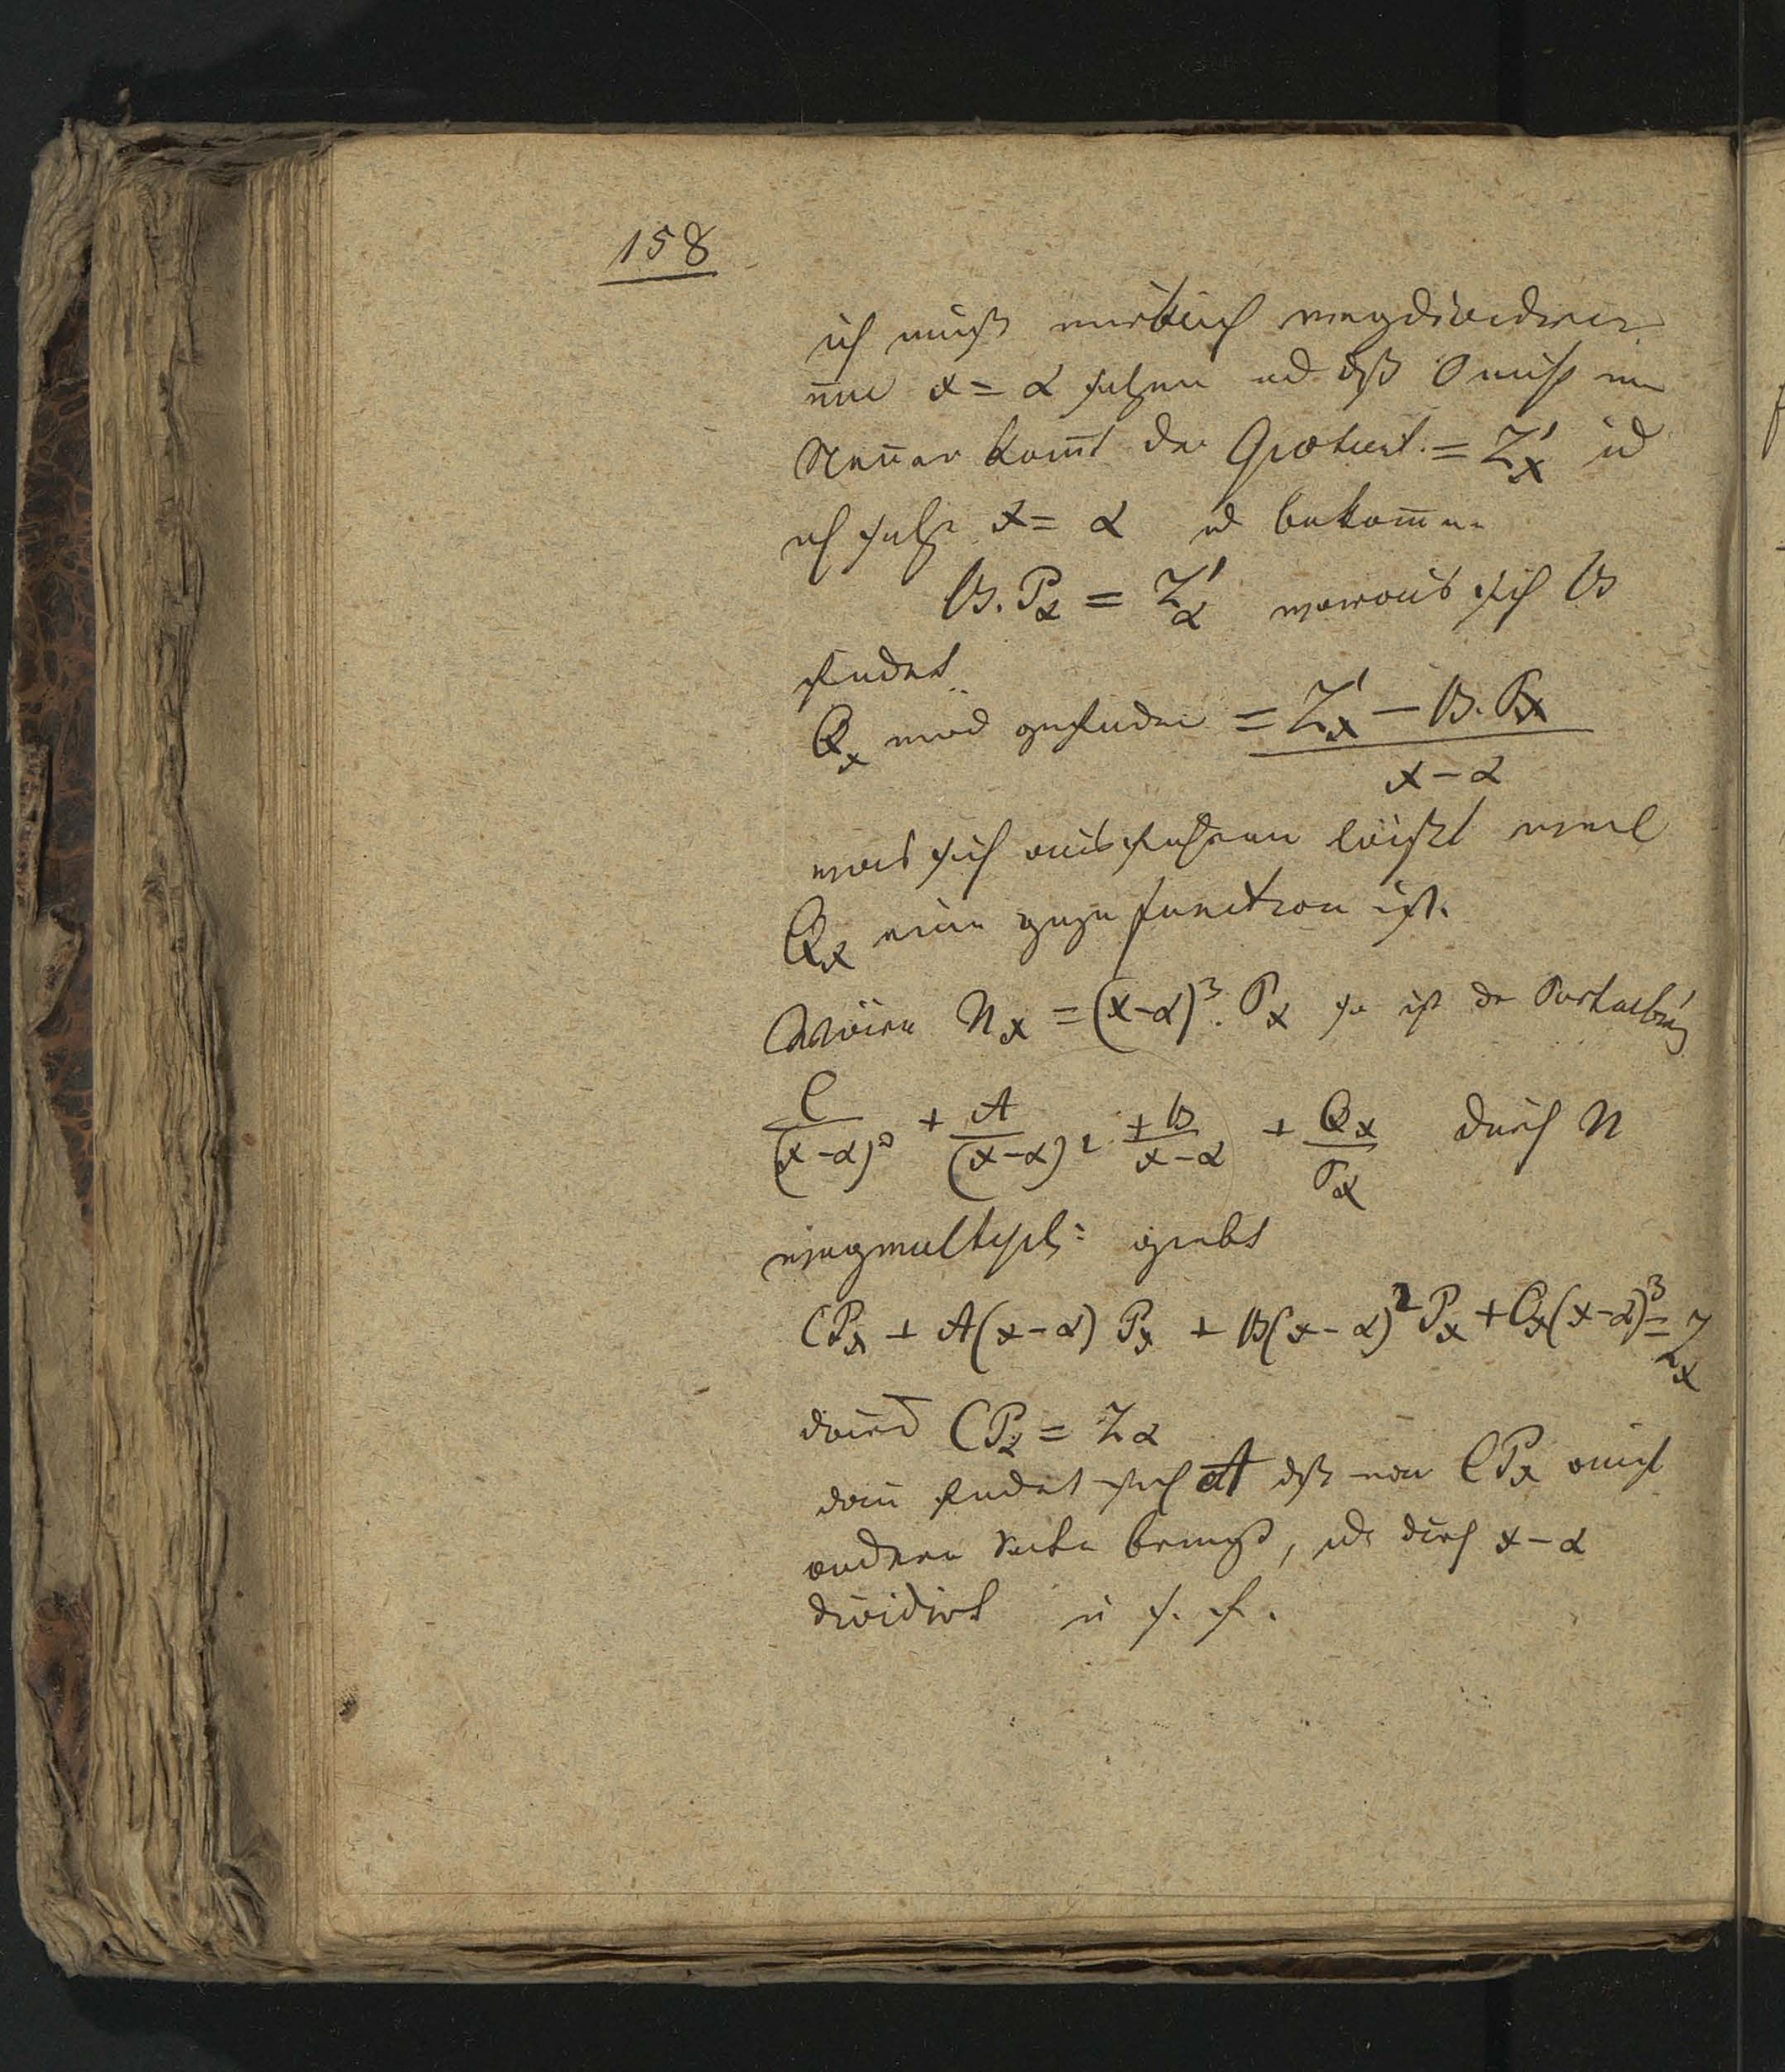 158
ich muß wirklich wegdividiren
um x = α setzen und daß 0 nicht im
Nenner kommt der Quotient. = Z'x und
ich setze x = α und bekomme
B. Pα = Z'α woraus sich B
findet
Qx wird gefunden = (Z'x − B. Px) / (x − α)
was sich ausführen läßt weil
Qx eine ganze function ist.
Wäre Nx = (x−α)³. Px so ist die
C/(x−α)³ + A/(x−α)² + B/(x−α) + Qx/Px durch N
wegmultipl: giebt
CPx + A(x−α) Px + B(x−α)² Px + Qx(x−α)³ = Zx
CPα = Zα
dann findet sich A daß man CPx auf
andere Seite bringt, und durch x−α
dividirt u s. f.